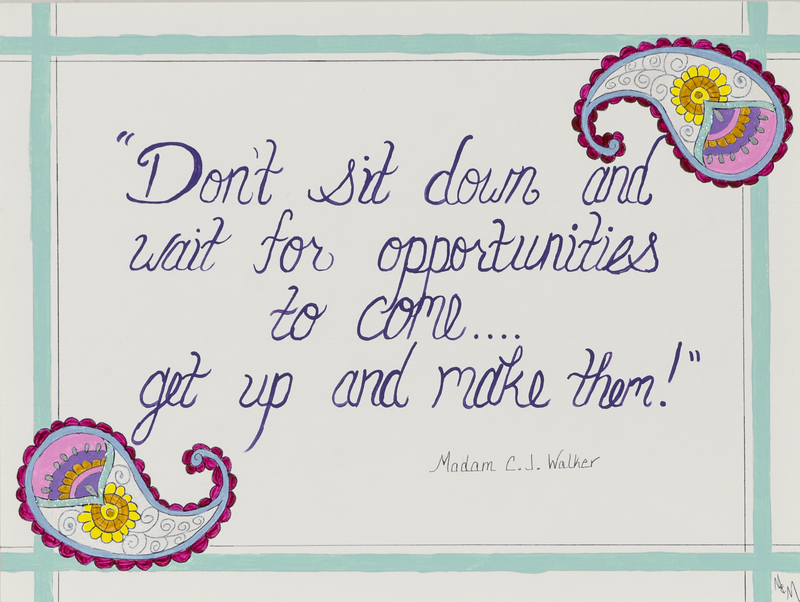 "Don't sit down and
wait for opportunities
to come....
get up and make them!"
Madam C.J. Walker